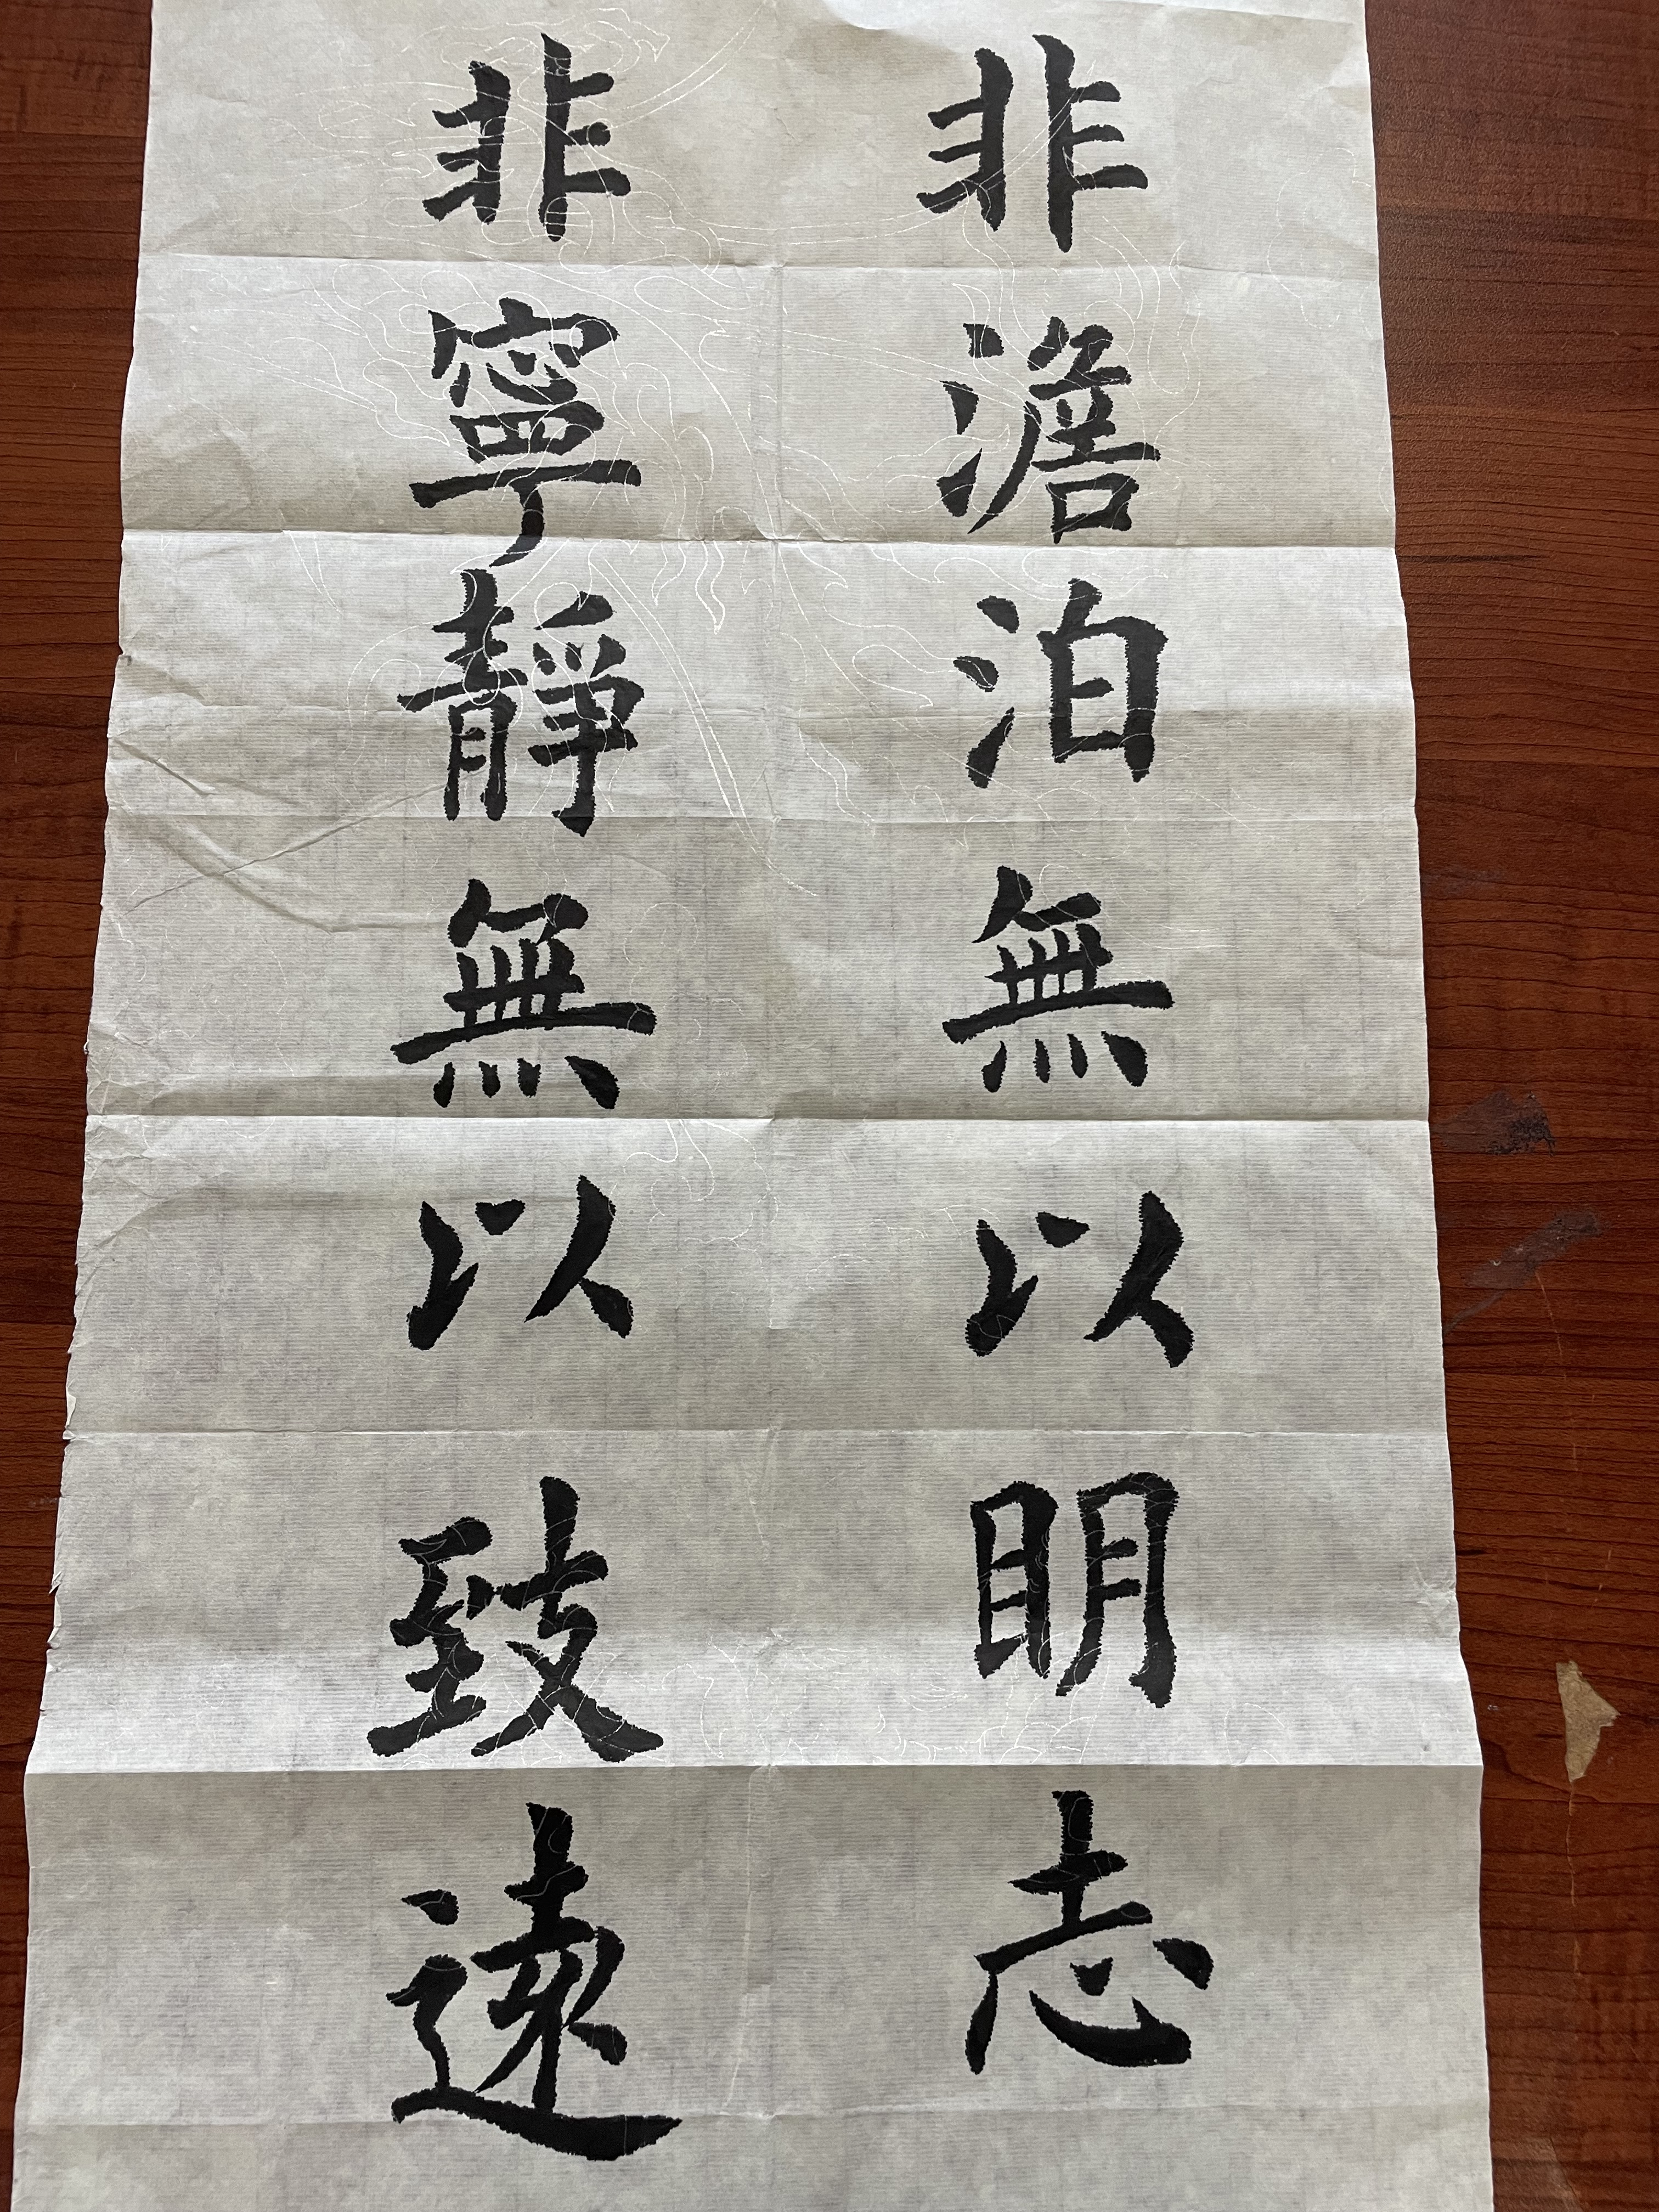 非澹泊無以明志
非寧靜無以致遠